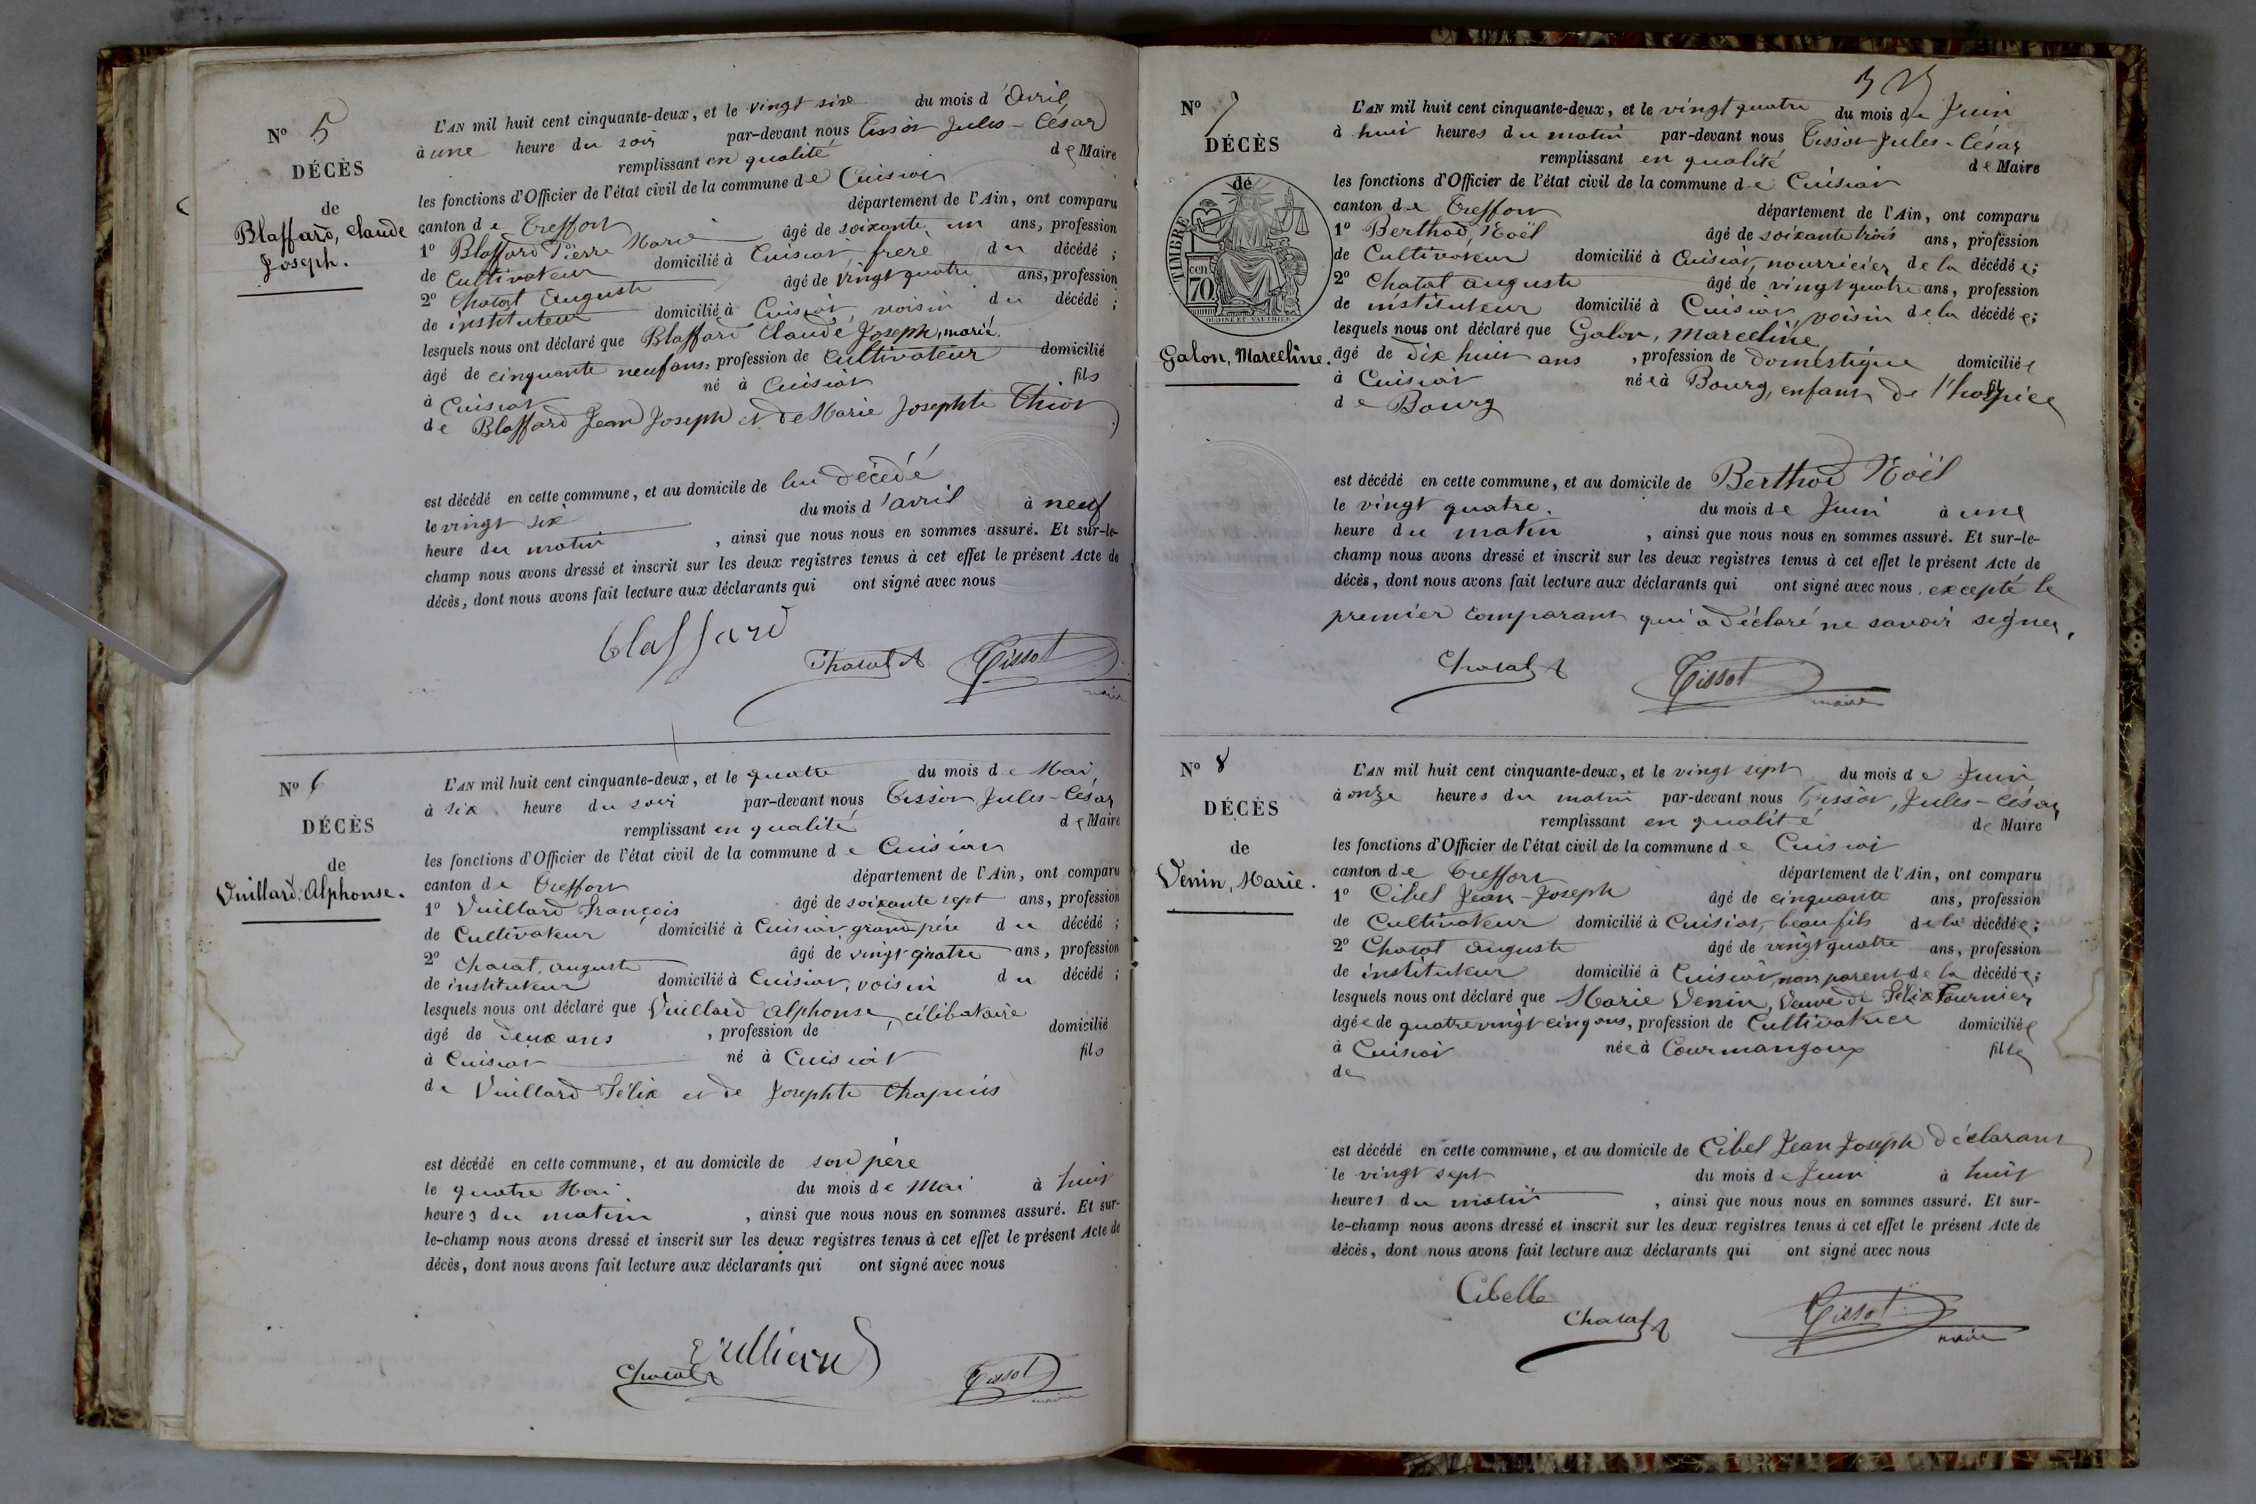 N° 5
DÉCÈS
de
Blaffard, Claude
Joseph.
L'AN mil huit cent cinquante-deux, et le vingt six du mois d'Avril
à une heure du soir par-devant nous Tissot Jules-César
remplissant en qualité de Maire
les fonctions d'Officier de l'état civil de la commune de Cuisiat
canton de Treffort département de l'Ain, ont comparu
1° Blaffard Pierre Marie âgé de soixante un ans, profession
de Cultivateur domicilié à Cuisiat, frère du décédé ;
2° Chatat Auguste âgé de vingt quatre ans, profession
de instituteur domicilié à Cuisiat voisin du décédé ;
lesquels nous ont déclaré que Blaffard Claude Joseph, marié,
âgé de cinquante neuf ans, profession de Cultivateur domicilié
à Cuisiat né à Cuisiat fils
de Blaffard Jean Joseph et de Marie Josephte Thiot
est décédé en cette commune, et au domicile de lui décédé
le vingt six du mois d'avril à neuf
heure du matin , ainsi que nous nous en sommes assuré. Et sur-le-
champ nous avons dressé et inscrit sur les deux registres tenus à cet effet le présent Acte de
décès, dont nous avons fait lecture aux déclarants qui ont signé avec nous
blaffard
Chatat A Tissot
maire
N° 6
DÉCÈS
de
Vuillard, Alphonse.
L'AN mil huit cent cinquante-deux, et le quatre du mois de Mai,
à six heure du soir par-devant nous Tissot Jules-César
remplissant en qualité de Maire
les fonctions d'Officier de l'état civil de la commune de Cuisiat
canton de Treffort département de l'Ain, ont comparu
1° Vuillard François âgé de soixante sept ans, profession
de Cultivateur domicilié à Cuisiat, grand père du décédé ;
2° Chatat, auguste âgé de vingt quatre ans, profession
de instituteur domicilié à Cuisiat, voisin du décédé ;
lesquels nous ont déclaré que Vuillard Alphonse, célibataire
âgé de deux ans , profession de domicilié
à Cuisiat né à Cuisiat fils
de Vuillard Félix et de Josephte Chapuis
est décédé en cette commune, et au domicile de son père
le quatre Mai. du mois de Mai à huit
heures du matin , ainsi que nous nous en sommes assuré. Et sur-
le-champ nous avons dressé et inscrit sur les deux registres tenus à cet effet le présent Acte de
décès, dont nous avons fait lecture aux déclarants qui ont signé avec nous
Chatat A Tissot
maire
N° 7
DÉCÈS
de
TIMBRE
70 cen
Galon, Marcelline.
L'AN mil huit cent cinquante-deux, et le vingt quatre du mois de Juin
à huit heures du matin par-devant nous Tissot Jules-César
remplissant en qualité de Maire
les fonctions d'Officier de l'état civil de la commune de Cuisiat
canton de Treffort département de l'Ain, ont comparu
1° Berthod, Noël âgé de soixante trois ans, profession
de Cultivateur domicilié à Cuisiat, nourricier de la décédée ;
2° Chatat auguste âgé de vingt quatre ans, profession
de instituteur domicilié à Cuisiat voisin de la décédée ;
lesquels nous ont déclaré que Galon, Marcelline,
âgé de dix huit ans , profession de domestique domiciliée
à Cuisiat née à Bourg, enfant de l'hospice
de Bourg
est décédé en cette commune, et au domicile de Berthod Noël
le vingt quatre. du mois de Juin à une
heure du matin , ainsi que nous nous en sommes assuré. Et sur-le-
champ nous avons dressé et inscrit sur les deux registres tenus à cet effet le présent Acte de
décès, dont nous avons fait lecture aux déclarants qui ont signé avec nous, excepté le
premier comparant qui a déclaré ne savoir signer.
Chatat A Tissot
maire
N° 8
DÉCÈS
de
Venin, Marie.
L'AN mil huit cent cinquante-deux, et le vingt sept du mois de Juin
à onze heures du matin par-devant nous Tissot, Jules-César
remplissant en qualité de Maire
les fonctions d'Officier de l'état civil de la commune de Cuisiat
canton de Treffort département de l'Ain, ont comparu
1° Cibel Jean-Joseph âgé de cinquante ans, profession
de Cultivateur domicilié à Cuisiat, beau fils de la décédée ;
2° Chatat Auguste âgé de vingt quatre ans, profession
de instituteur domicilié à Cuisiat, non parent de la décédée ;
lesquels nous ont déclaré que Marie Venin, Veuve de Félix Fournier
âgée de quatre vingt cinq ans, profession de Cultivatrice domiciliée
à Cuisiat née à Courmangoux fille
de
est décédé en cette commune, et au domicile de Cibel Jean Joseph déclarant
le vingt sept du mois de Juin à huit
heures du matin , ainsi que nous nous en sommes assuré. Et sur-
le-champ nous avons dressé et inscrit sur les deux registres tenus à cet effet le présent Acte de
décès, dont nous avons fait lecture aux déclarants qui ont signé avec nous
Cibelle
Chatat A Tissot
maire